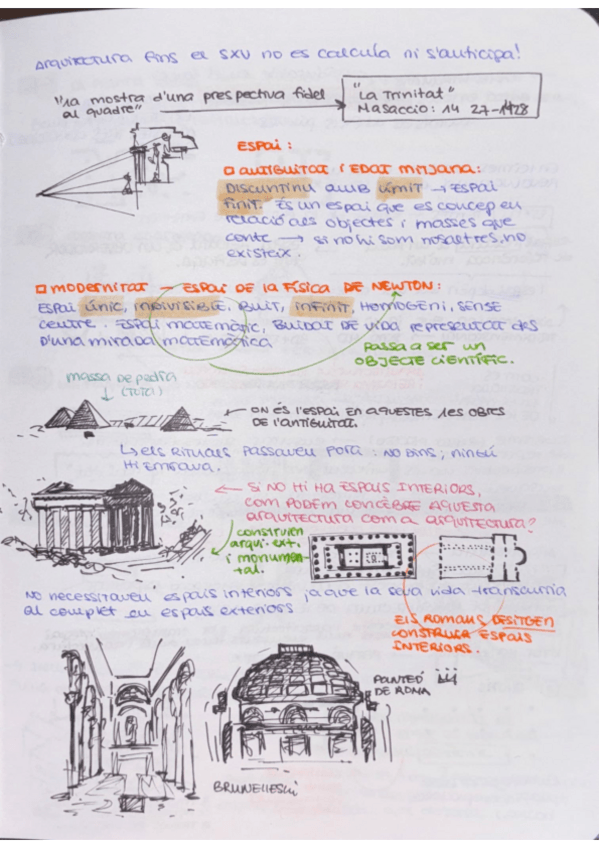 Arquitectura fins el SXV no es calcula ni s'anticipa!
"1a mostra d'una prespectiva fidel
al quadre"
"La Trinitat"
Masaccio: 14 27-1428
ESPAI:
ANTIGUITAT i EDAT MITJANA:
DISCUNTINU AMB LÍMIT → ESPAI
FINIT. És un espai que es concep en
relació als objectes i masses que
conté → si no hi som nosaltres, no
existeix.
MODERNITAT – ESPAI DE la FÍSICA DE NEWTON:
ESPAI ÚNIC, INDIVISIBLE, BUIT, INFINIT, HEMOGENI, SENSE
CENTRE. ESPAI matemàtic, BUIDAT DE VIDA representat des
D'una mirada matemàtica
Passa a ser un
OBJECTE CIENTÍFIC.
massa de pedra
(TOTA)
← ON és l'espai EN aquestes 1es obres
DE l'antiguitat.
↳ els RITUALS PASSAVEN FORA: NO DINS; NINGÚ
HI ENTRAVA.
← SI NO HI HA ESPAIS INTERIORS,
COM PODEM CONCEBRE AQUESTA
ARQUITECTURA COM A ARQUITECTURA?
construien
arqui. ext.
i monumen-
tal.
NO necessitaven espais interiors ja que la seva vida transcurria
al complet en espais exteriors
Els ROMANS DESITGEN
CONSTRUIR ESPAIS
INTERIORS.
PANTEÓ
DE ROMA
BRUNELLESCHI